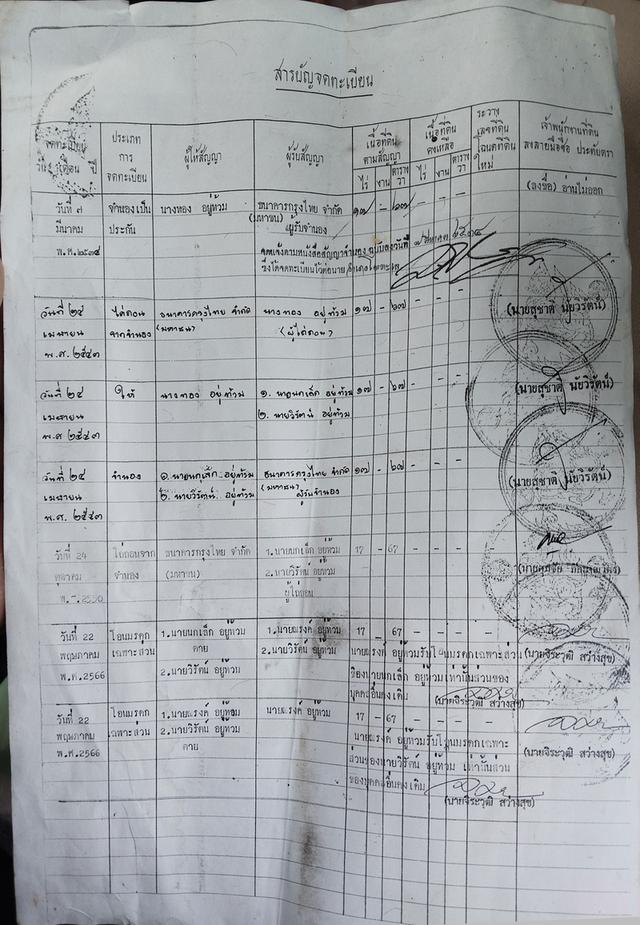 สารบัญจดทะเบียน
จดทะเบียน วันที่ เดือน ปี
ประเภทการจดทะเบียน
ผู้ให้สัญญา
ผู้รับสัญญา
เนื้อที่ดินตามสัญญา
ไร่ งาน ตารางวา
เนื้อที่ดินคงเหลือ
ไร่ งาน ตารางวา
ระวาง เลขที่ดิน โฉนดที่ดินใหม่
เจ้าพนักงานที่ดิน ลงลายมือชื่อ ประทับตรา
วันที่ ๗ จำนองเป็น นางทอง อยู่ท้วม ธนาคารกรุงไทย จำกัด ๑๗ - ๖๗ - - - (ลงชื่อ) อ่านไม่ออก
มีนาคม ประกัน (มหาชน) ผู้รับจำนอง
พ.ศ.๒๕๓๘
วันที่ ๒๔ ไถ่ถอน ธนาคารกรุงไทย จำกัด นางทอง อยู่ท้วม ๑๗ - ๖๗ - - - (นายสุชาติ นัยวิรัตน์)
เมษายน จากจำนอง (มหาชน) (ผู้ไถ่ถอน)
พ.ศ. ๒๕๔๓
วันที่ ๒๔ ให้ นางทอง อยู่ท้วม ๑. นายนกเล็ก อยู่ท้วม ๑๗ - ๖๗ - - - (นายสุชาติ นัยวิรัตน์)
เมษายน ๒. นายวิรัตน์ อยู่ท้วม
พ.ศ ๒๕๔๓
วันที่ ๒๔ จำนอง ๑. นายนกเล็ก อยู่ท้วม ธนาคารกรุงไทย จำกัด ๑๗ - ๖๗ - - - (นายสุชาติ นัยวิรัตน์)
เมษายน ๒. นายวิรัตน์ อยู่ท้วม (มหาชน) ผู้รับจำนอง
พ.ศ. ๒๕๔๓
วันที่ 24 ไถ่ถอนจาก ธนาคารกรุงไทย จำกัด 1.นายนกเล็ก อยู่ท้วม 17 - 67 - - -
ตุลาคม จำนอง (มหาชน) 2.นายวิรัตน์ อยู่ท้วม
ผู้ไถ่ถอน
วันที่ 22 โอนมรดก 1.นายนกเล็ก อยู่ท้วม 1.นายณรงค์ อยู่ท้วม 17 - 67 - - -
พฤษภาคม เฉพาะส่วน ตาย 2.นายวิรัตน์ อยู่ท้วม นายณรงค์ อยู่ท้วมรับโอนมรดกเฉพาะส่วน (นายจิระวุฒิ สว่างสุข)
พ.ศ.2566 2.นายวิรัตน์ อยู่ท้วม ของนายนกเล็ก อยู่ท้วม เท่านั้นส่วนของ
บุคคลอื่นคงเดิม (นายจิระวุฒิ สว่างสุข)
วันที่ 22 โอนมรดก 1.นายณรงค์ อยู่ท้วม นายณรงค์ อยู่ท้วม 17 - 67 - - -
พฤษภาคม เฉพาะส่วน 2.นายวิรัตน์ อยู่ท้วม นายณรงค์ อยู่ท้วมรับโอนมรดกเฉพาะ
พ.ศ.2566 ตาย ส่วนของนายวิรัตน์ อยู่ท้วม เท่านั้นส่วน (นายจิระวุฒิ สว่างสุข)
ของบุคคลอื่นคงเดิม
(นายจิระวุฒิ สว่างสุข)